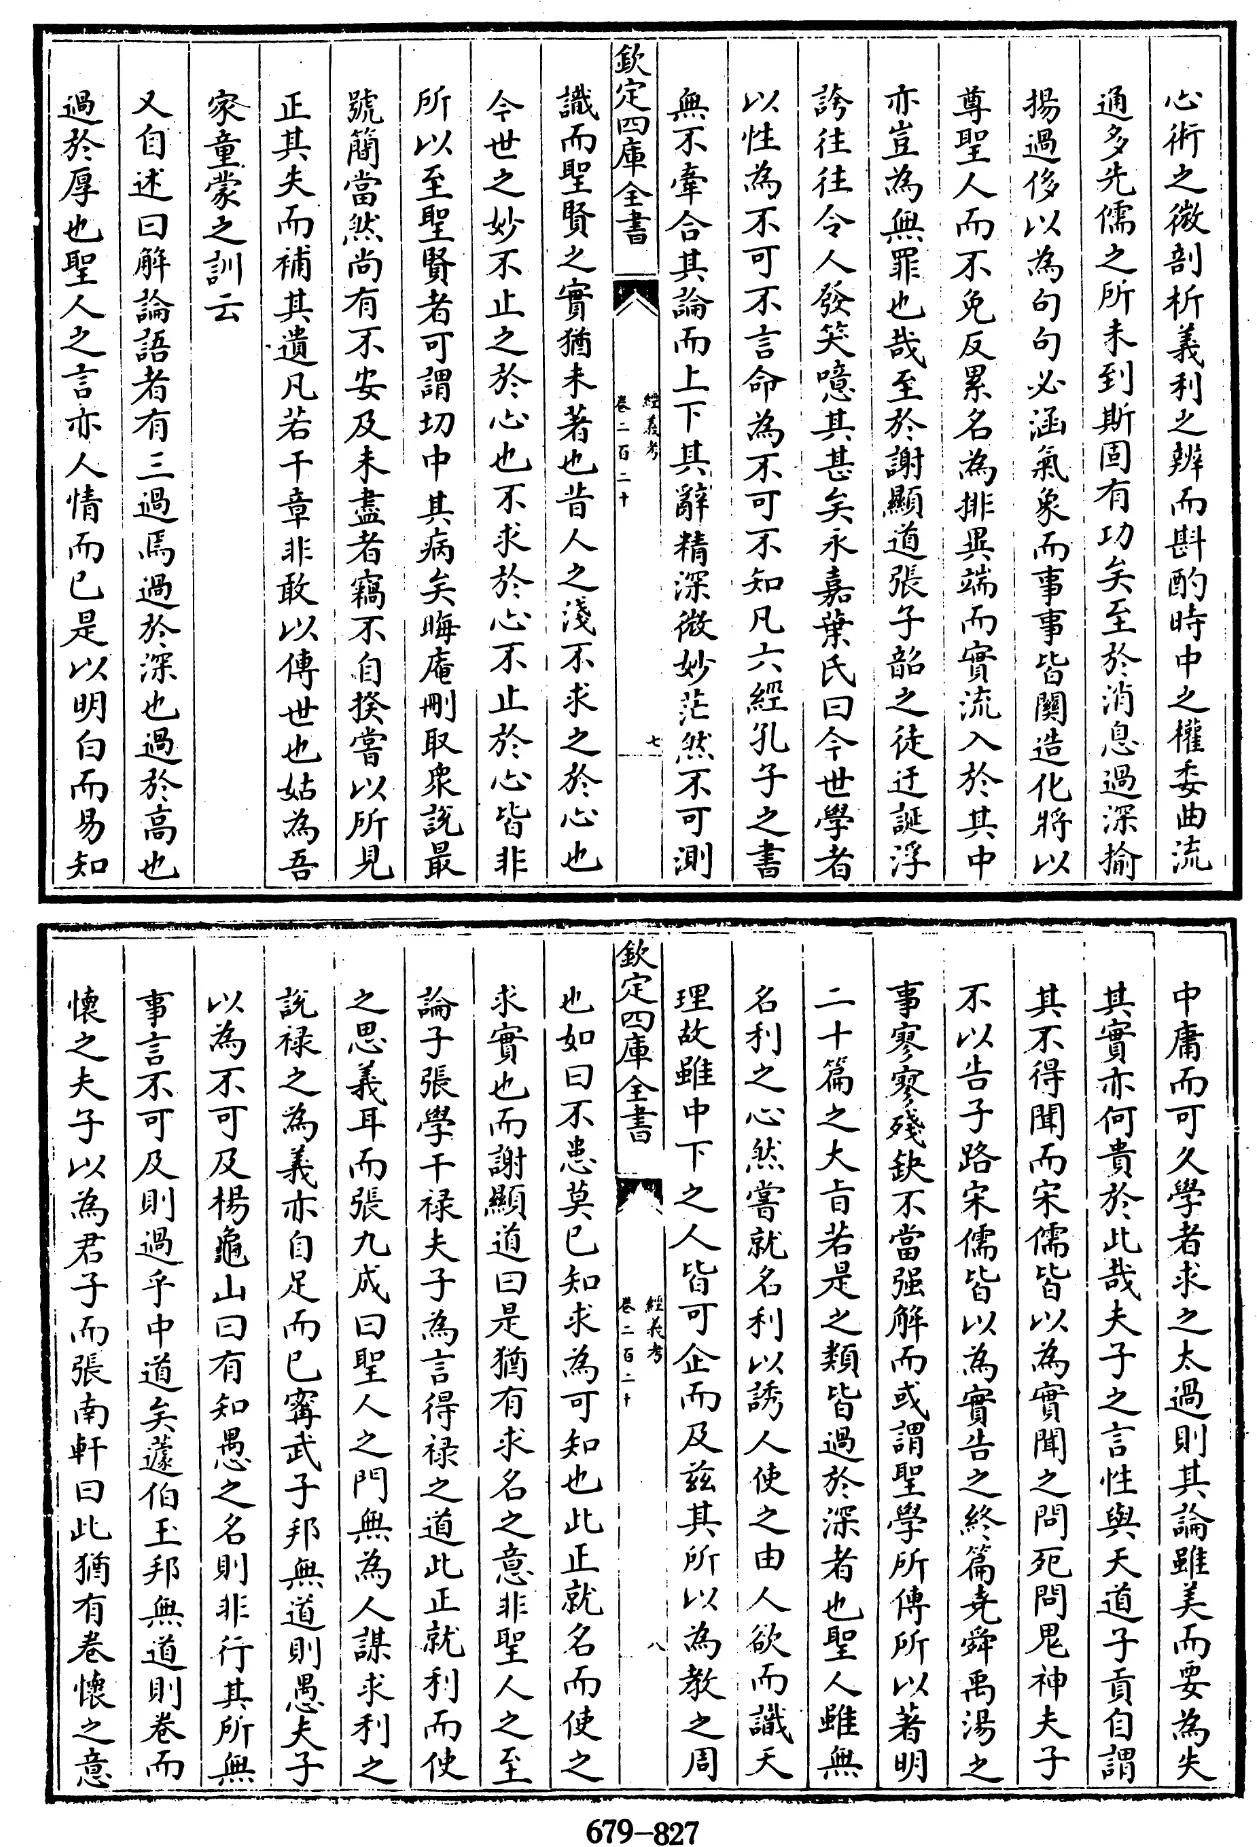 心術之微剖析義利之辨而斟酌時中之權委曲流
通多先儒之所未到斯固有功矣至於消息過深揄
揚過侈以為句句必涵氣象而事事皆關造化將以
尊聖人而不免反累名為排異端而實流入於其中
亦豈為無罪也哉至於謝顯道張子韶之徒迂誕浮
誇往往令人發笑噫其甚矣永嘉葉氏曰今世學者
以性為不可不言命為不可不知凡六經孔子之書
無不牽合其論而上下其辭精深微妙茫然不可測
欽定四庫全書
經義考
卷二百二十
七
識而聖賢之實猶未著也昔人之淺不求之於心也
今世之妙不止之於心也不求於心不止於心皆非
所以至聖賢者可謂切中其病矣晦庵刪取衆說最
號簡當然尚有不安及未盡者竊不自揆嘗以所見
正其失而補其遺凡若干章非敢以傳世也姑為吾
家童蒙之訓云
又自述曰解論語者有三過焉過於深也過於高也
過於厚也聖人之言亦人情而已是以明白而易知
中庸而可久學者求之太過則其論雖美而要為失
其實亦何貴於此哉夫子之言性與天道子貢自謂
其不得聞而宋儒皆以為實聞之問死問鬼神夫子
不以告子路宋儒皆以為實告之終篇堯舜禹湯之
事寥寥殘缺不當强解而或謂聖學所傳所以著明
二十篇之大旨若是之類皆過於深者也聖人雖無
名利之心然嘗就名利以誘人使之由人欲而識天
理故雖中下之人皆可企而及兹其所以為教之周
欽定四庫全書
經義考
卷二百二十
八
也如曰不患莫已知求為可知也此正就名而使之
求實也而謝顯道曰是猶有求名之意非聖人之至
論子張學干禄夫子為言得禄之道此正就利而使
之思義耳而張九成曰聖人之門無為人謀求利之
說禄之為義亦自足而已甯武子邦無道則愚夫子
以為不可及楊龜山曰有知愚之名則非行其所無
事言不可及則過乎中道矣蘧伯玉邦無道則卷而
懷之夫子以為君子而張南軒曰此猶有卷懷之意
679-827